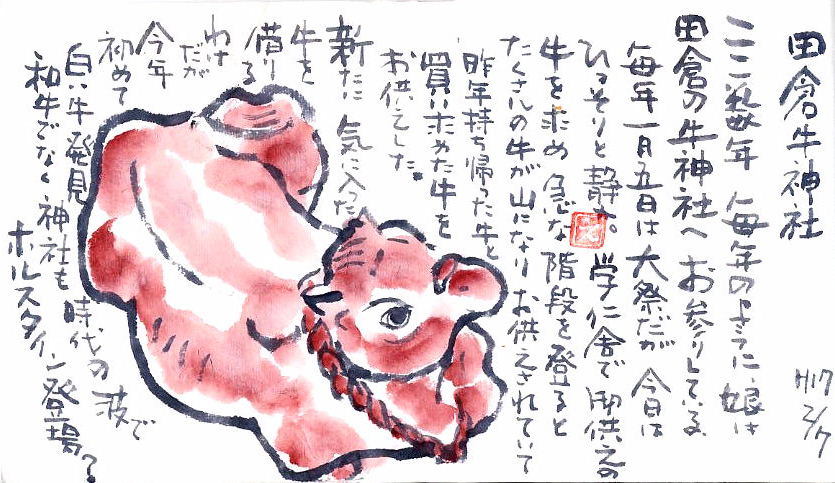 田倉牛神社
ここ数年 毎年のように娘は
田倉の牛神社へお参りしている。
毎年一月五日は大祭だが 今日は
ひっそりと静か。学仁舎で御供えの
牛を求め 急な階段を登ると
たくさんの牛が山になりお供えされていて
昨年持ち帰った牛と
買い求めた牛を
お供えした。
新たに気に入った
牛を
借りる
わけ
だが
今年
初めて
白い牛発見
和牛でなく神社も時代の波で
ホルスタイン登場?
H17
2/7